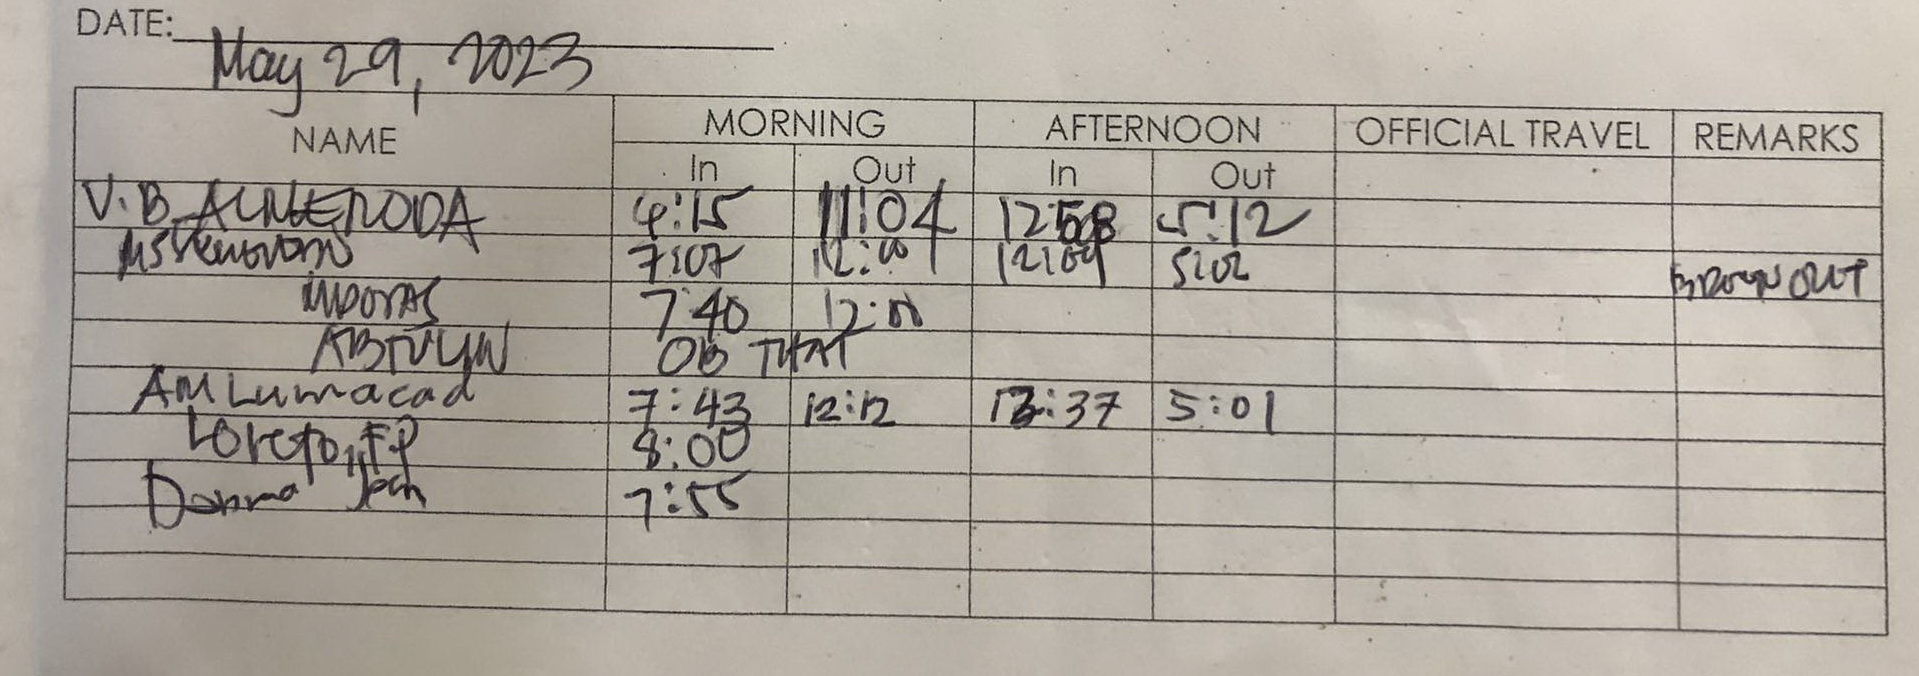 DATE: May 29, 2023
NAME MORNING AFTERNOON OFFICIAL TRAVEL REMARKS
In Out In Out
V.B. ALMENODA 4:15 11:04 12:58 5:12
7:07 12:00 12:09 5:02 BROWN OUT
7:40 12:01
OB THAT
AM Lumacad 7:43 12:12 12:37 5:01
Loreto, FP 8:00
Donna 7:55